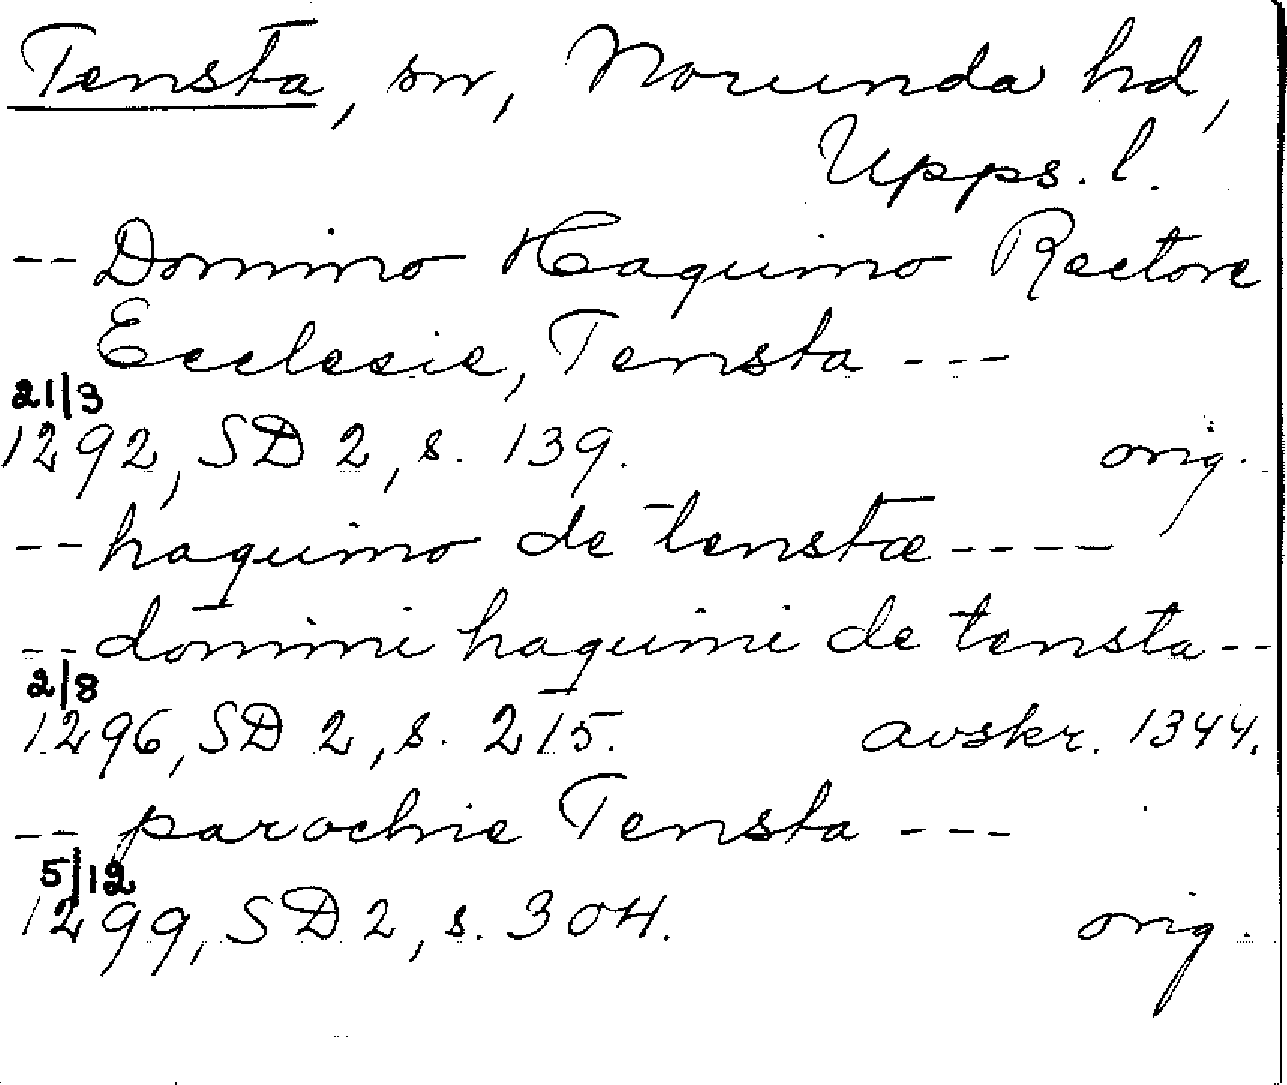 Tensta, sn, Norunda hd,
Upps. l.
-- Domino Haquino Rectore
Ecclesie, Tensta ---
21/3
1292, SD 2, s. 139. orig.
-- haquino de tenstæ ----
-- domini haquini de tensta --
2/8
1296, SD 2, s. 215. avskr. 1344.
-- parochie Tensta ---
5/12
1299, SD 2, s. 304. orig.